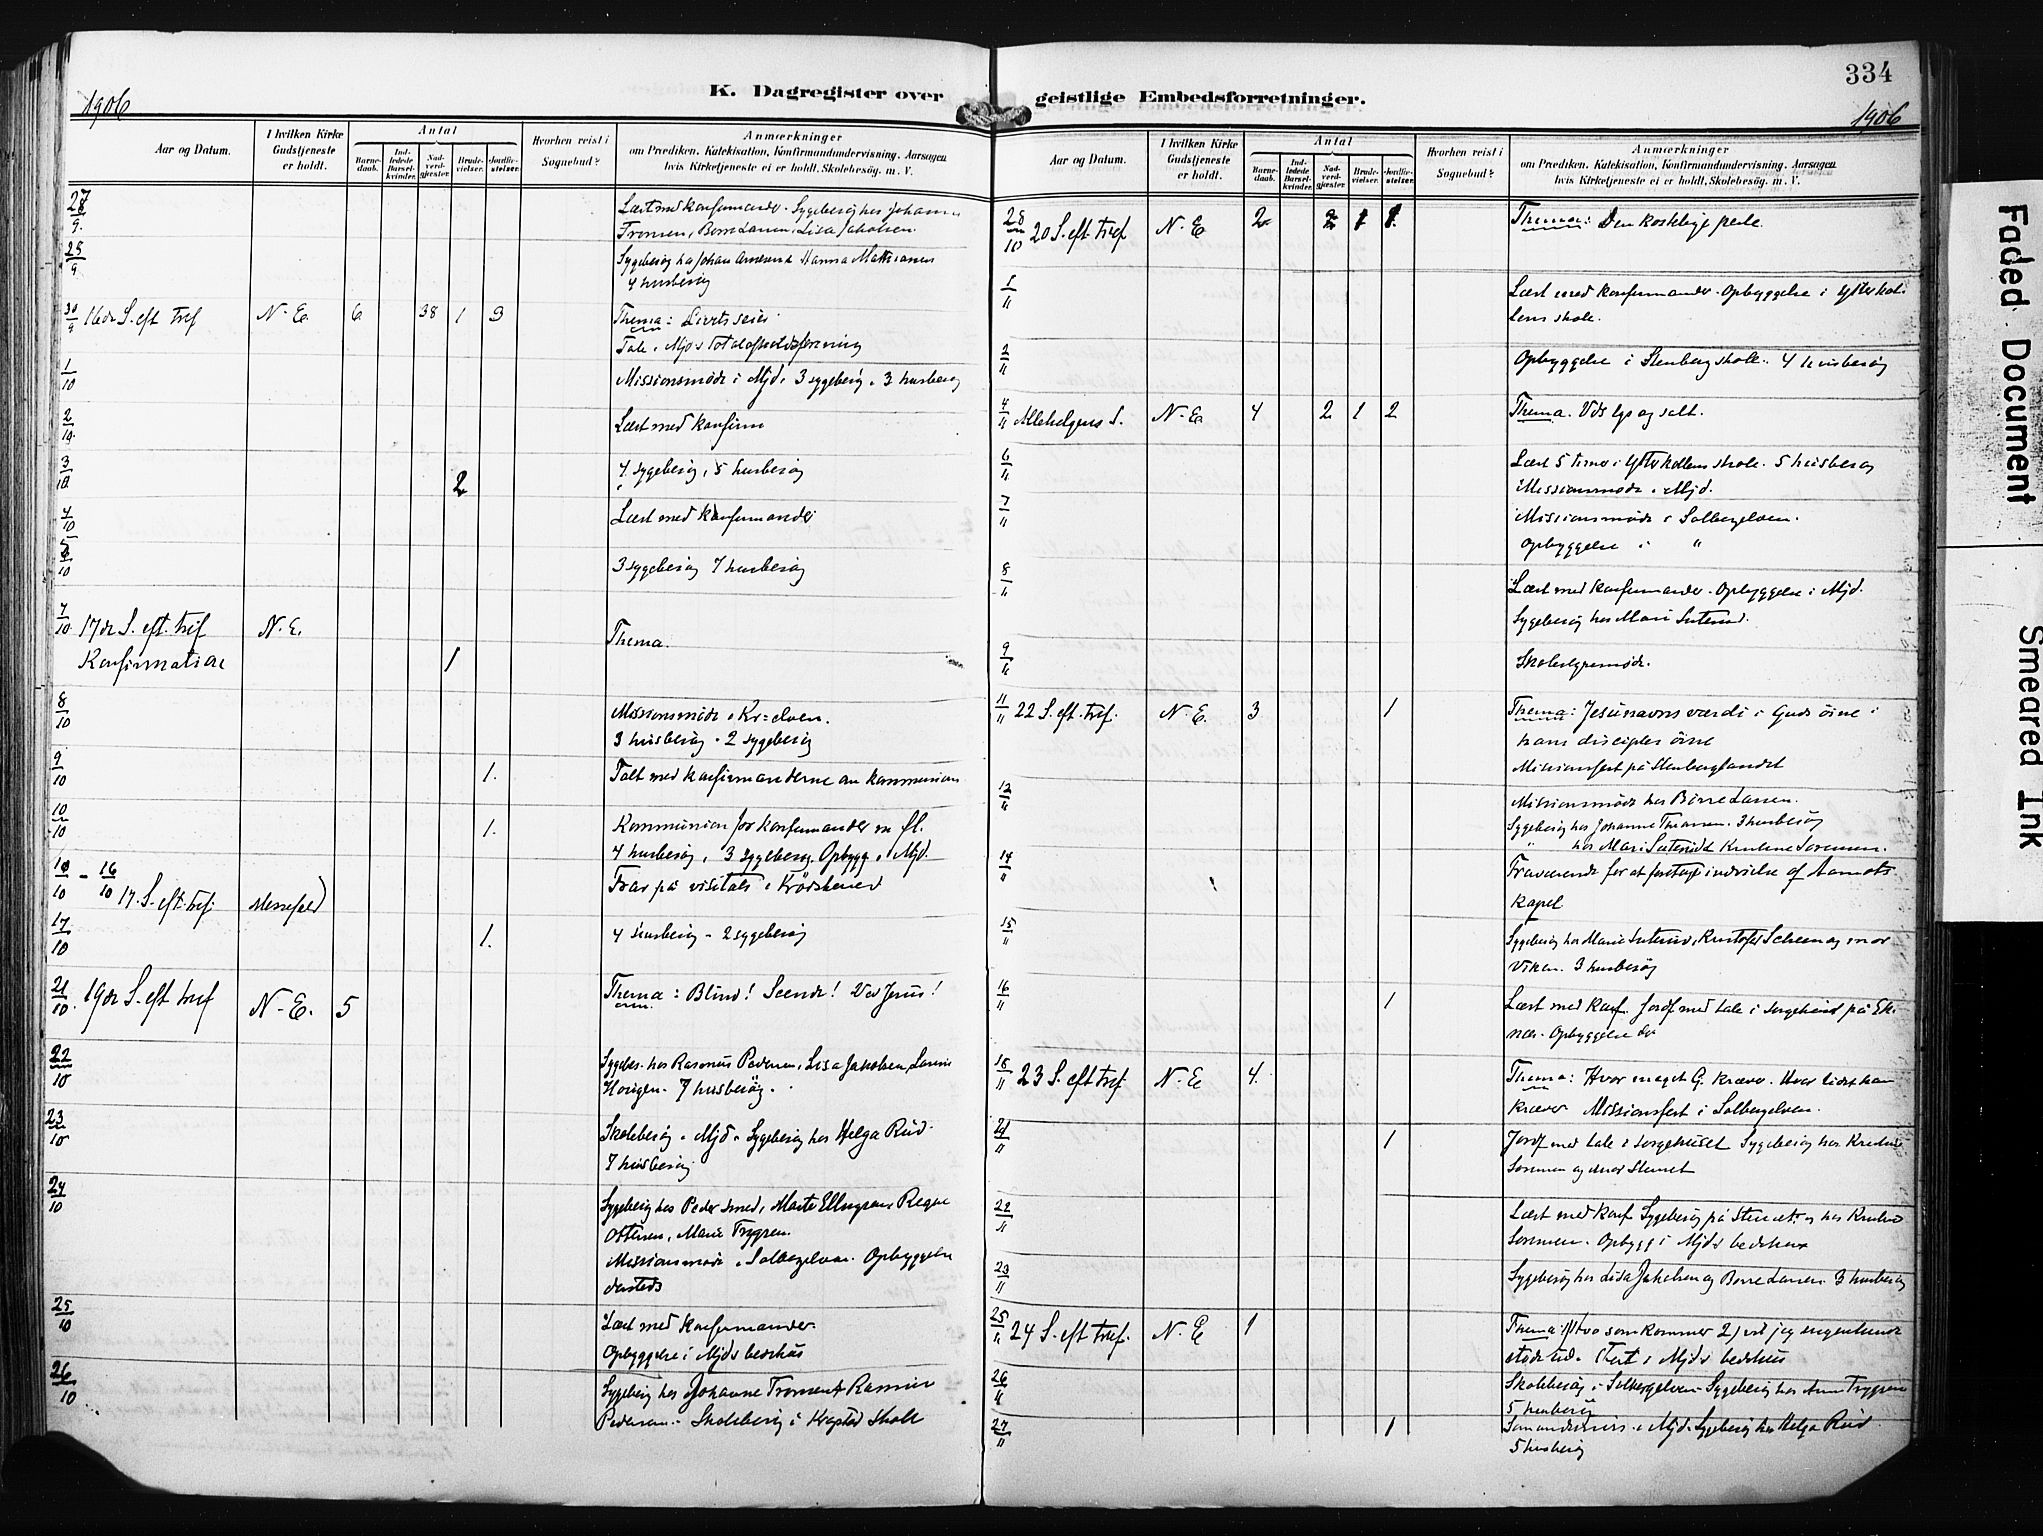 334
1906
K. Dagregister over
geistlige Embedsforretninger.
1906
Aar og Datum.
I hvilken Kirke Gudstjeneste er holdt.
Antal
Barne-daab.
Ind-ledede Barsel-kvinder.
Nad-verd-gjester.
Brude-vielser.
Jordfæ-stelser.
Hvorhen reist i Sognebud?
Anmærkninger
om Prædiken, Katekisation, Konfirmandundervisning, Aarsagen
hvis Kirketjeneste ei er holdt, Skolebesög. m. V.
27/9 Læst med konfirmander. Sygebesøg hos Johanne
Tronsen, Børre Larsen, Lisa Jakobsen.
25/9 Sygebesøg hos Johan
4 husbesøg
30/9 16de S. eft tref N-E. 6 38 1 3 Thema: Livets seier
Tale i Mjd's Totalafholdsforening
1/10 Missionsmøde i Mjd. 3 sygebesøg. 3 husbesøg
2/10 Læst med konfirm
3/10 2 4 sygebesøg, 5 husbesøg
4/10 Læst med konfirmander
5/10 3 sygebesøg 7 husbesøg
7/10 17de S. eft. tref N.E. Thema.
Konfirmation 1
8/10 Missionsmøde i Kr=elven.
3 husbesøg. 2 sygebesøg
9/10 1. Talt med konfirmanderne om kommunion
10/10 1. Kommunion for konfirmander m fl.
4 husbesøg, 3 sygebesøg. Opbygg i Mjd.
10/10 - 16/10 17. S. eft. tref. Messefald Frav på visitats i Krødsherred
17/10 1. 4 husbesøg - 2 sygebesøg
21/10. 19de S. eft tref N-E. 5 Thema: Blind! Seende! Ved Jesus!
22/10 Sygebes. hos Rasmus Pedersen, Lisa Jakobsen,
Horgen. 7 husbesøg.
23/10 Skolebesøg i Mjd. Sygebesøg hos Helga Rud.
7 husbesøg.
24/10 Sygebesøg hos Peder Smed, Marte Ellingsen,
Ottesen, Marie Trygsen.
Missionsmøde i Solbergelven. Opbyggelse
dersteds
25/10 Læst med konfirmander.
Opbyggelse i Mjds bedehus
26/10 Sygebesøg hos Johanne Tronsen & Rasmus
Pedersen. Skolebesøg i Krogstad Skole
Aar og Datum.
I hvilken Kirke Gudstjeneste er holdt.
Antal
Barne-daab.
Ind-ledede Barsel-kvinder.
Nad-verd-gjester.
Brude-vielser.
Jordfæ-stelser.
Hvorhen reist i Sognebud?
Anmærkninger
om Prædiken, Katekisation, Konfirmandundervisning, Aarsagen
hvis Kirketjeneste ei er holdt, Skolebesög. m. V.
28/10 20 S. eft tref N-E 2 2 1 1. Thema: Den kostelige perle.
1/11 Læst med konfirmander. Opbyggelse i Ytterkol-
lens skole.
2/11 Opbyggelse i Stenberg skole. 4 husbesøg
4/11 Allehelgens S. N-E. 4 2 1 2 Thema. Vds lys og salt.
6/11 Læst 5 timer i Ytterkollens skole. 5 husbesøg
Missionsmøde i Mjd.
7/11 Missionsmøde i Solbergelven.
Opbyggelse i "
8/11 Læst med konfirmander. Opbyggelse i Mjd.
Sygebesøg hos Mari
9/11 Skolestyremøde.
11/11 22 S. eft. tref. N-E. 3 1 Thema: Jesu navns værdi i Guds øine i
hans disciples øine
Missionsfest på Stenberglandet
12/11 Missionsmøde hos Børre Larsen.
Sygebesøg hos Johanne Tronsen. 3 husbesøg
" hos Mari Knutine Sorensen.
14/11 Fraværende for at foretage indvielse af Aamots
kapel
15/11 Sygebesøg hos Marie Kristoffer Scheen og mor
Viken. 3 husbesøg
16/11 1 Læst med konf. Jordf med tale i sorgehuset på Ek-
nes. Opbyggelse der
18/11 23 S. eft tref. N-E 4. Thema: Hvor meget G. kræver. Hvor lidet han
kræver Missionsfest i Solbergelven.
21/11 1 Jordf med tale i sorgehuset Sygebesøg hos
Sorensen og mor Stenset
22/11 Læst med konf Sygebesøg på Stenset og hos
Sorensen. Opbygg i Mjds bedehus
23/11 Sygebesøg hos Lisa Jakobsen og Børre Larsen 3 husbesøg
25/11 24 S. eft tref. N-E 1 Thema: 1) Hvo som kommer 2) vil jeg ingenlunde
støde ud. Fest i Mjds bedehus
26/11 Skolebesøg i Solbergelven. Sygebesøg hos Anne Trygsen
5 husbesøg
27/11 1 i Mjd. Sygebesøg hos Helga Rud.
5 husbesøg
Faded Document
Smeared Ink